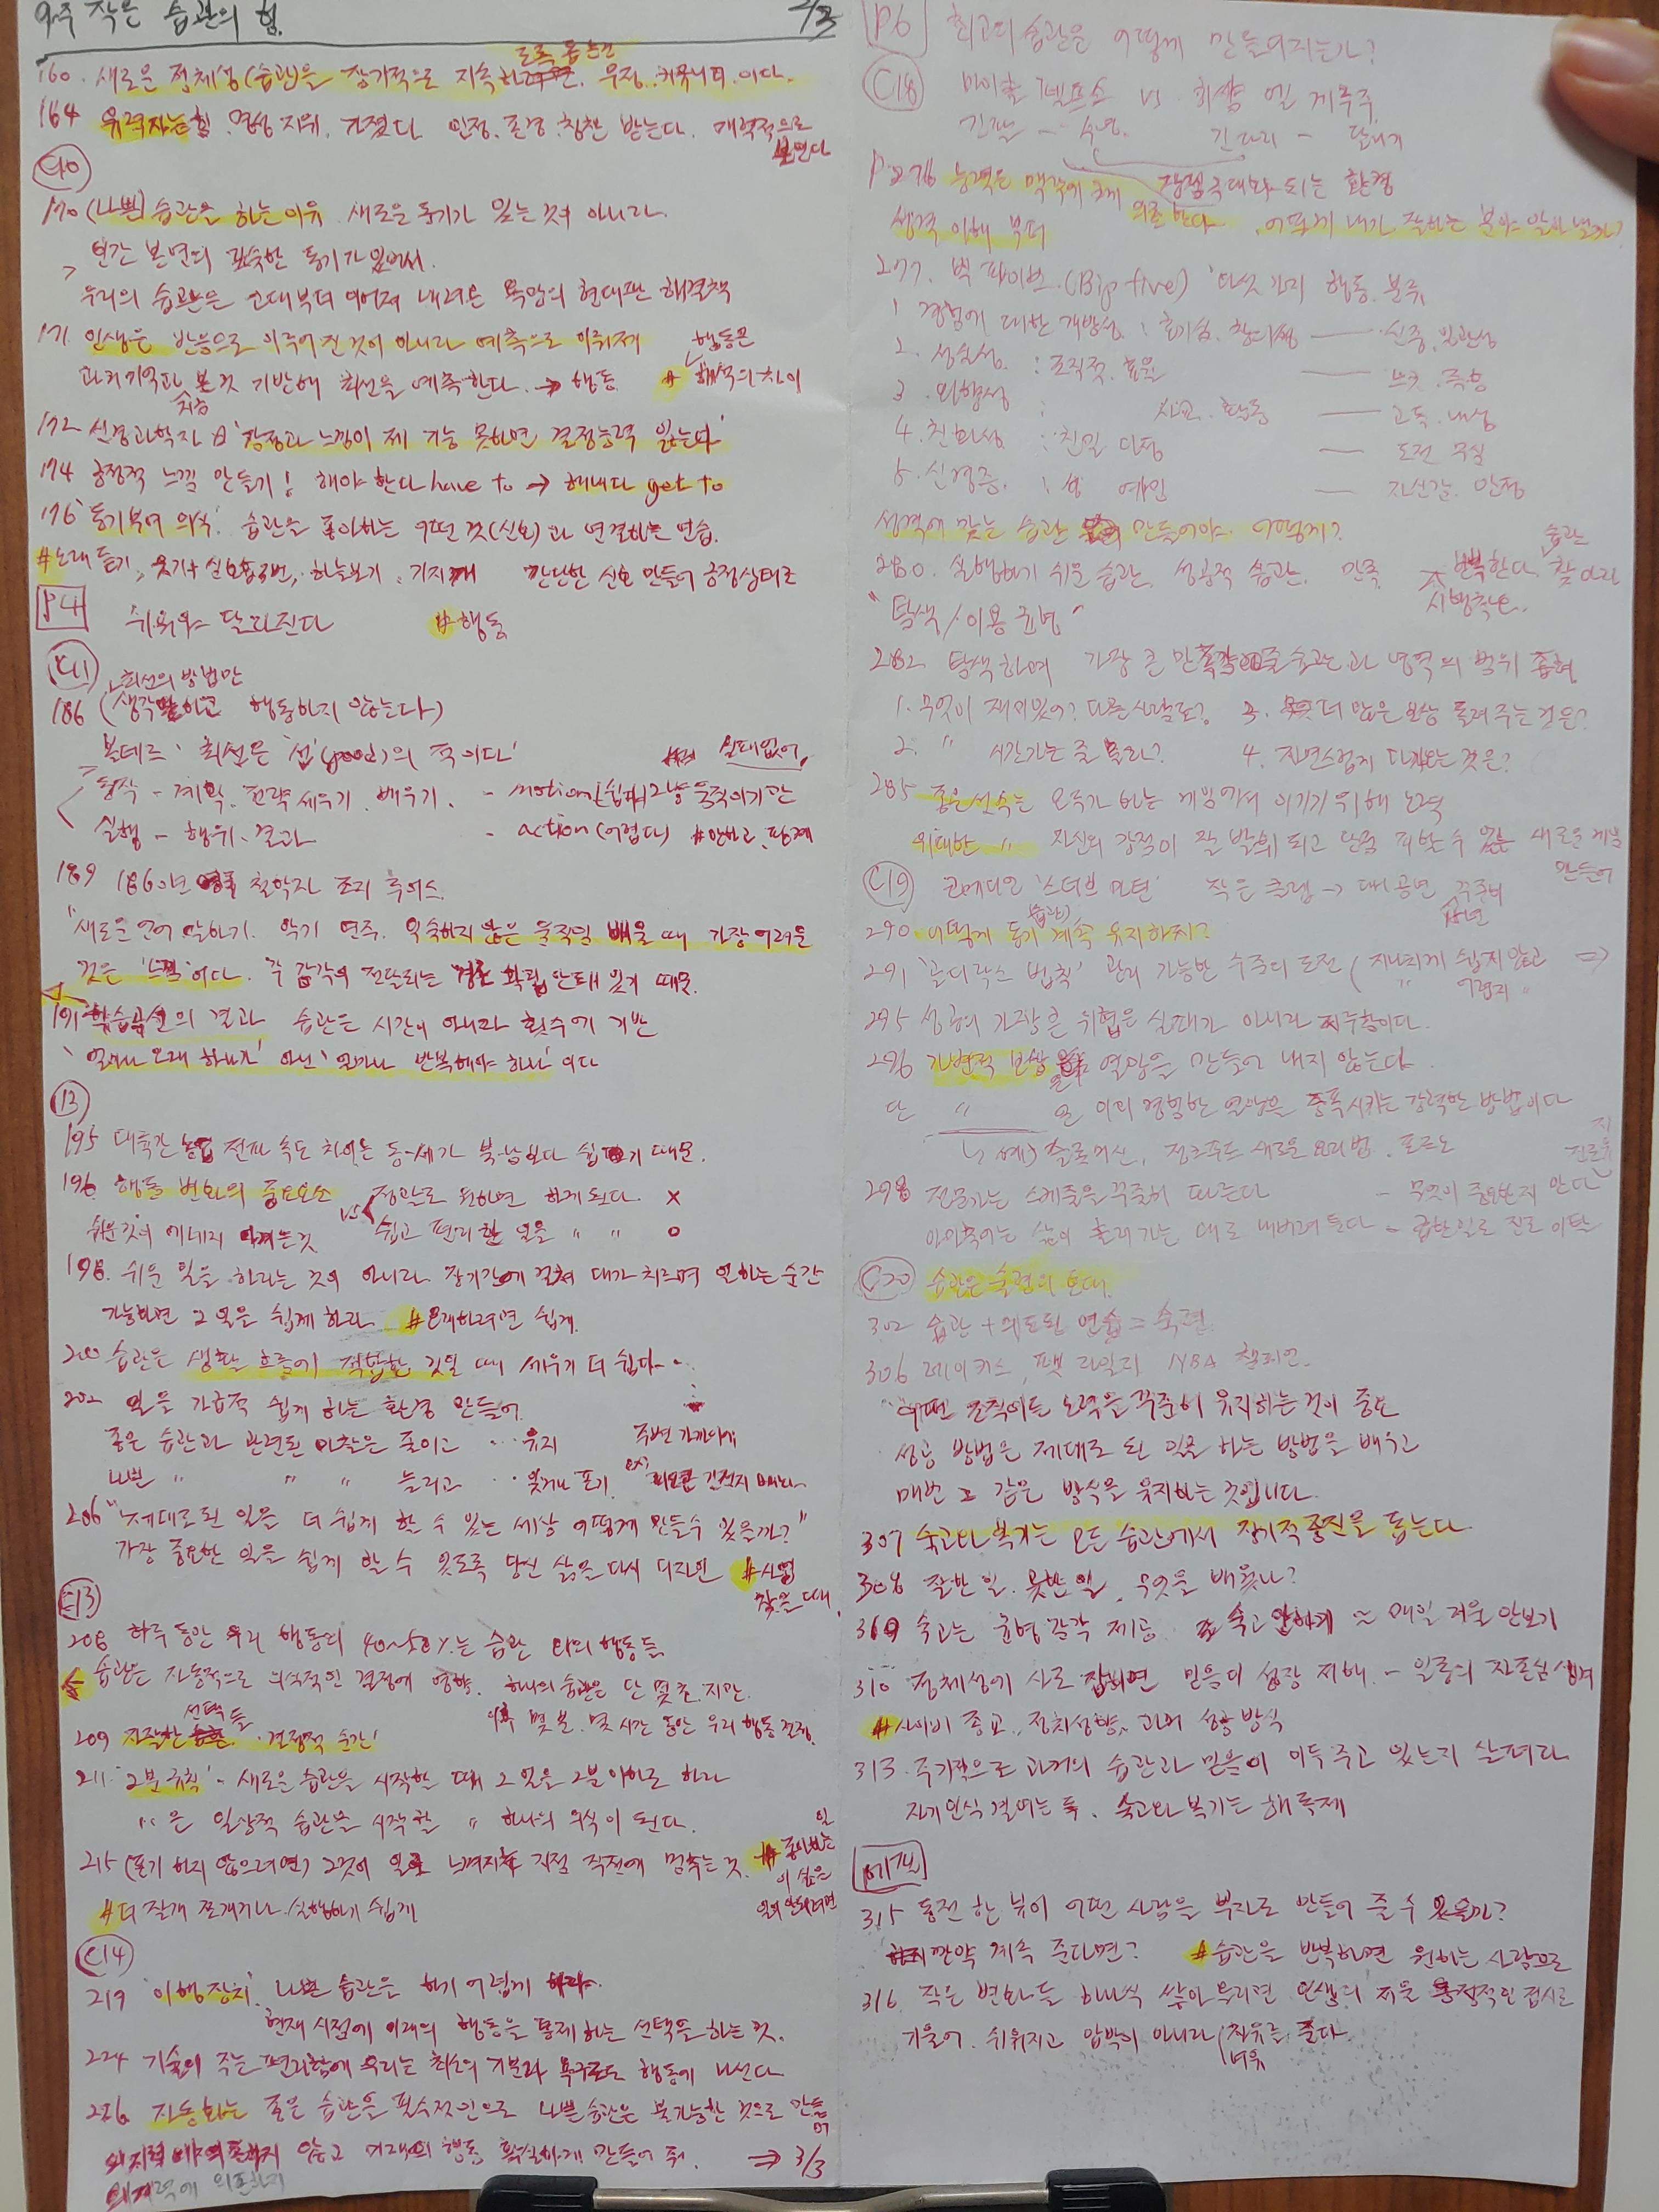 9주 작은 습관의 힘. 2/3
도록 돕는건
160. 새로운 정체성(습관)을 장기적으로 지속하 우정. 커뮤니티. 이다.
164 유력자는 힘. 명성 지위. 가졌다 인정. 존경. 칭찬 받는다. 매력적으로
보인다
C10
170 (나쁜) 습관을 하는 이유. 새로운 동기가 있는 것이 아니라.
인간 본연의 깊숙한 동기가 있어서.
우리의 습관은 고대부터 이어져 내려온 욕망의 현대판 해결책
171. 인생은 반응으로 이루어진 것이 아니라 예측으로 이뤄져 행동은
과거 기억과 본것 기반해 최선을 예측한다. → 행동 # 해석의 차이
172 신경과학자 '감정과 느낌이 제 기능 못하면 결정능력 잃는다'
174 긍정적 느낌 만들기! 해야 한다 have to → 해내다 get to
176 '동기부여 의식'. 습관을 좋아하는 어떤 것(신호)과 연결하는 연습.
#노래 듣기, 웃기+심호흡3번, 하늘보기, 기지개 간단한 신호 만들어 긍정상태로
P4 쉬워야 달라진다 #행동
C11
최선의 방법만
186 (생각 하고 행동하지 않는다)
볼테르 '최선은 '선'(good)의 적이다'
실패없어,
동작 - 계획. 전략 세우기. 배우기. - motion(쉽다) 그냥 움직이기만
실행 - 행위. 결과 - action (어렵다) #안하고, 핑계
189 1860년 철학자 조지 루이스.
"새로운 언어 말하기. 악기 연주. 익숙하지 않은 움직임 배울 때 가장 어려운
것은 '느낌'이다. 각 감각이 전달되는 경로 확립 안돼 있기 때문.
191 학습곡선의 결과 습관은 시간이 아니라 횟수에 기반
'얼마나 오래 하는가' 아닌 '얼마나 반복해야 하나' 이다
12
195 대륙간 농업 전파 속도 차이는 동-서가 북-남보다 쉽기 때문.
196 행동 변화의 중요요소 정말로 원하면 하게 된다. X
쉬운것이 에너지 아끼는것 vs 쉽고 편리한 일을 〃 〃 O
198. 쉬운 일을 하라는 것이 아니라 장기간에 걸쳐 대가 치르며 일하는 순간
가능하면 그 일을 쉽게 하라. #오래하려면 쉽게.
200 습관은 생활 흐름에 적합한 것일 때 세우기 더 쉽다...
202 일을 가급적 쉽게 하는 환경 만들어
좋은 습관과 관련된 마찰은 줄이고 ... 유지 주변 가까이에
나쁜 〃 〃 〃 늘리고 ... 포기. ex) 리모콘 건전지 빼놔
206 "제대로 된 일을 더 쉽게 할 수 있는 세상 어떻게 만들수 있을까?"
가장 중요한 일을 쉽게 할 수 있도록 당신 삶을 다시 디자인 #사업
찾을때,
C13
208 하루 동안 우리 행동의 40~50%는 습관 행동들
습관은 자동적으로 의식적인 결정에 영향. 하나의 습관은 단 몇초. 지만
선택들 이후 몇 분. 몇 시간 동안 우리 행동 결정.
209 자잘한 . 결정적 순간!
211. '2분 규칙' - 새로운 습관을 시작할 때 그 일을 2분 이하로 하라
〃은 일상적 습관을 시작할 〃 하나의 의식이 된다.
215 (포기 하지 않으려면) 그것이 일로 느껴지는 지점 직전에 멈추는 것. # 좋아하는 일
이 싫은
일이 안되려면
#더 잘게 쪼개거나. 실행하기 쉽게
C14
219 '이행장치'. 나쁜 습관은 하기 어렵게
현재 시점에 미래의 행동을 통제 하는 선택을 하는 것.
224 기술이 주는 편리함에 우리는 최소의 기분과 욕구로도 행동에 나선다
226 자동화는 좋은 습관을 필수적인으로 나쁜 습관은 불가능한 것으로 만들어
의지력에 의존하지 않고 미래의 행동 확실하게 만들어 줘. ⇒ 3/3
의지력에 의존하지
P6 최고의 습관은 어떻게 만들어지는가?
C18 마이클 펠프스 vs. 히샴 엘 게루주.
긴팔 - 수영. 긴다리 - 달리기
P.276 능력은 맥락에 크게 의존한다. 장점 극대화 되는 환경
성격 이해 부터 . 어떻게 내가 잘하는 분야 알아낼까?
277. 빅 파이브. (Big five) '다섯 가지 행동. 분류
1. 경험에 대한 개방성. : 호기심. 창의성 — 신중. 일관성
2. 성실성. : 조직적. 효율 — 느긋. 즉흥
3. 외향성 : 사교. 활동 — 고독. 내성
4. 친화성 : 친밀 다정 — 도전 무심
5. 신경증. : 예민 — 자신감. 안정
성격에 맞는 습관 만들어야. 어떻게?
280. 실행하기 쉬운 습관, 성공적 습관. 만족 반복한다. 습관 찾아라
시행착오.
"탐색/이용 균형"
282 탐색하여 가장 큰 만족감 줄 습관과 영역의 범위 좁혀
1. 무엇이 재미있어? 다른 사람도? 3. 더 많은 보상 돌려주는 것은?
2. 〃 시간가는 줄 몰라? 4. 자연스럽게 다가오는 것은?
285 좋은선수는 모두가 하는 게임에서 이기기 위해 노력
위대한 〃 자신의 강점이 잘 발휘 되고 단점 피할수 있는 새로운 게임
만들어
C19 코메디언 '스티브 마틴' 작은 클럽 → 대 공연 꾸준히
290 어떻게 동기(습관) 계속 유지하지?
291 '골디락스 법칙' 관리 가능한 수준의 도전 (지나치게 쉽지 않고 ⇒
〃 어렵지 〃
295 성공의 가장 큰 위협은 실패가 아니라 지루함이다.
296 가변적 보상은 열망을 만들어 내지 않는다
단 〃 은 이미 경험한 열망을 증폭시키는 강력한 방법이다
↳ 예) 슬롯머신, 정크푸드 새로운 요리법. 포르노
298 전문가는 스케줄을 꾸준히 따른다 - 무엇이 중요한지 안다
아마추어는 삶이 흘러가는 대로 내버려 둔다 - 급한일로 진로 이탈
C20 습관은 숙련의 토대.
302 습관 + 의도된 연습 = 숙련
306 레이커스, 팻 라일리 NBA 챔피언.
"어떤 조직이든 노력을 꾸준히 유지하는 것이 중요
성공 방법은 제대로 된 일을 하는 방법을 배우고
매번 그 같은 방식을 유지하는 것입니다.
307 숙고와 복기는 모든 습관에서 장기적 증진을 돕는다
308 잘한 일. 못한 일. 무엇을 배웠나?
309 숙고는 균형 감각 제공 숙고 안하게 ≈ 매일 거울 안보기
310 정체성에 사로 잡히면 믿음이 성장 저해. - 일종의 자존심 생겨
#사이비 종교, 정치성향, 과거 성공 방식
313. 주기적으로 과거의 습관과 믿음이 이득 주고 있는지 살펴라
자기 인식 결여는 독. 숙고와 복기는 해독제
에필
315 동전 한 닢이 어떤 사람을 부자로 만들어 줄 수 있을까?
만약 계속 준다면? #습관을 반복하면 원하는 사람으로
316. 작은 변화들 하나씩 쌓아 올리면 인생의 저울 긍정적인 접시로
기울어. 쉬워지고 압박이 아니라 (자유를 준다.
여유